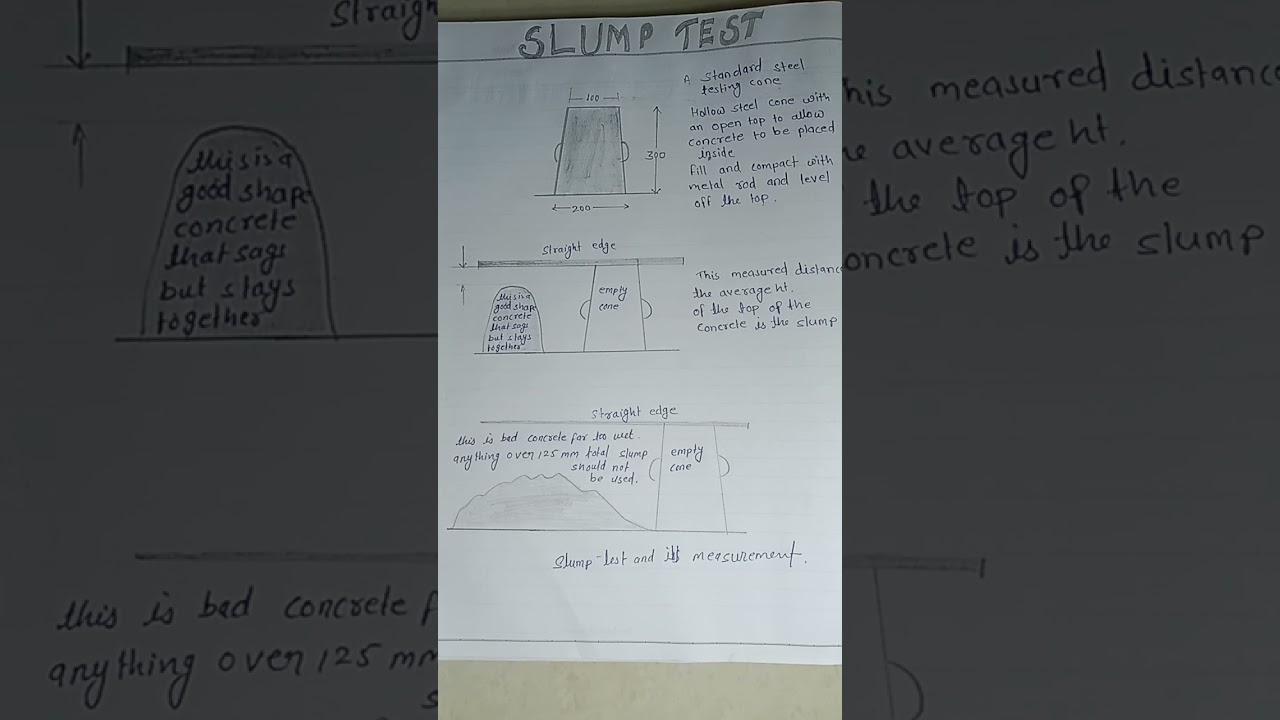 SLUMP TEST
A standard steel
testing cone
Hollow steel cone with
an open top to allow
concrete to be placed
inside
Fill and compact with
metal rod and level
off the top.
100
300
200
Straight edge
this is a
good shape
concrete
that sags
but stays
together
empty
cone
This measured distance
the average ht.
of the top of the
concrete is the slump
Straight edge
this is bad concrete far too wet.
anything over 125 mm total slump
should not
be used.
empty
cone
Slump-test and its measurement.
Straigh
this is a
good shape
concrete
that sags
but stays
together
this is bad concrete f
anything over 125 mm
his measured distance
average ht.
the top of the
oncrete is the slump